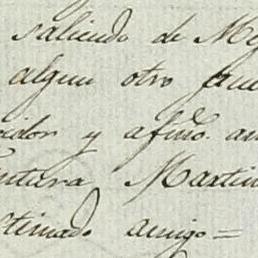 saliendo de My
algun otro pue
cidor y afmo. am
entura Martin
stimado amigo =